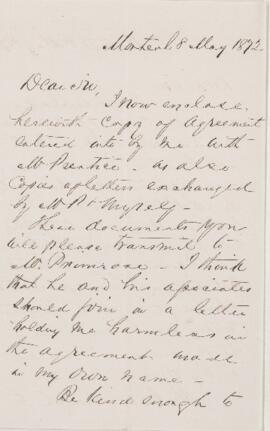 Montreal 8 May 1872.
Dear Sir,
I now enclose
herewith Copy of Agreement
entered into by me with
Mr Prentice - as also
Copies of letters exchanged
by Mr P & Myself -
These documents you
will please transmit to
Mr. Primrose - I think
that he and his associates
should join in a letter
holding me harmless in
the agreement made
in my own name -
Be kind enough to